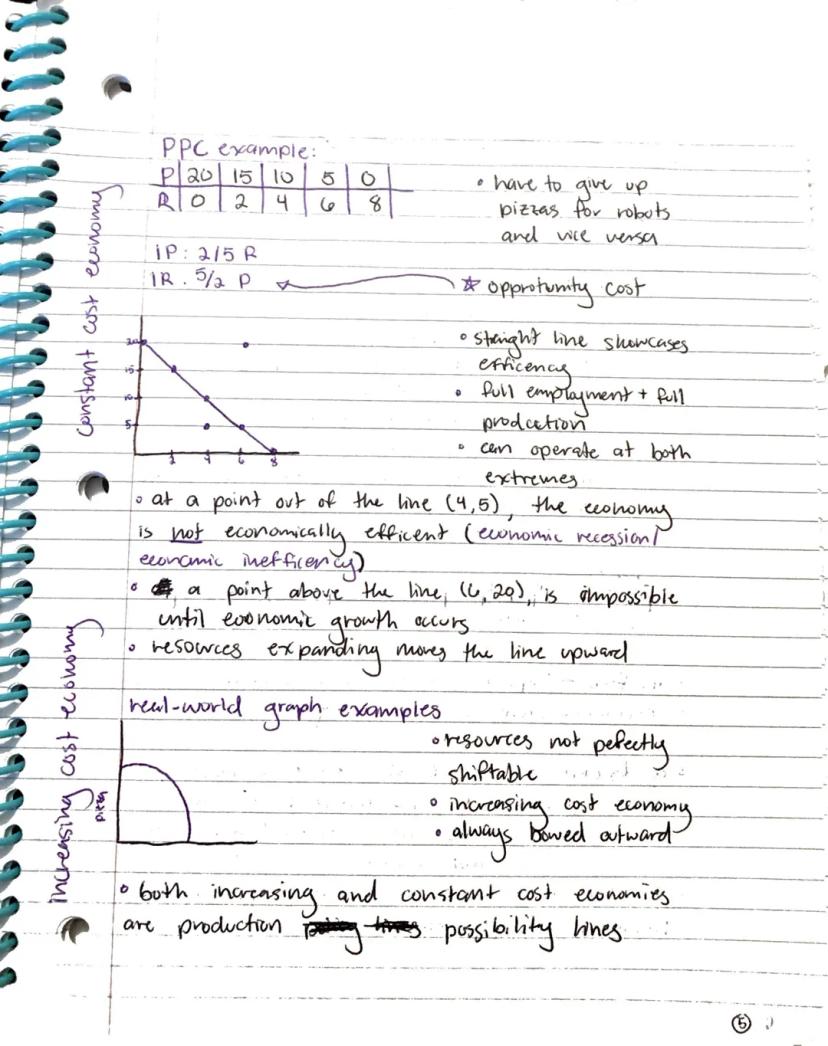 PPC example:
P 20 15 10 5 0
R 0 2 4 6 8
• have to give up
pizzas for robots
and vice versa
1P: 2/5 R
1R. 5/2 P
☆ opprotunity cost
constant cost economy
20
15
10
5
2 4 6 8
• staight line showcases
efficency
• full employment + full
prodcction
• can operate at both
extremes
• at a point out of the line (4,5), the economy
is not economically efficent (economic recession/
economic inefficency)
• a point above the line, (6, 20), is impossible
until economic growth occurs
• resources expanding moves the line upward
increasing cost economy
real-world graph examples
pizza
• resources not pefectly
shiftable
• increasing cost economy
• always bowed outward
• both increasing and constant cost economies
are production possibility lines
5